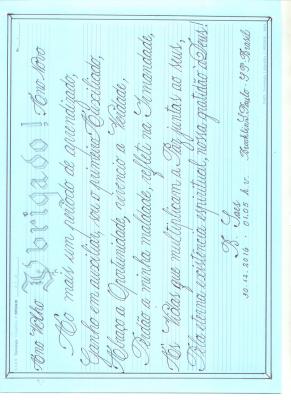 Ano Velho Obrigado! Ano Novo
Ao mais um período de aprendizado,
Ganha em auxiliar, sou o primeiro Auxiliado,
Abraço a Oportunidade, vivencio a Verdade,
Perdão a minha maldade, refleti na Irmandade,
As Vidas que multiplicam a Paz juntas ao seus,
Pela eterna existência espiritual, nossa gratidão à Deus!
30.12.2016 01:05 h.v.
Franklin São Paulo - SP Brasil